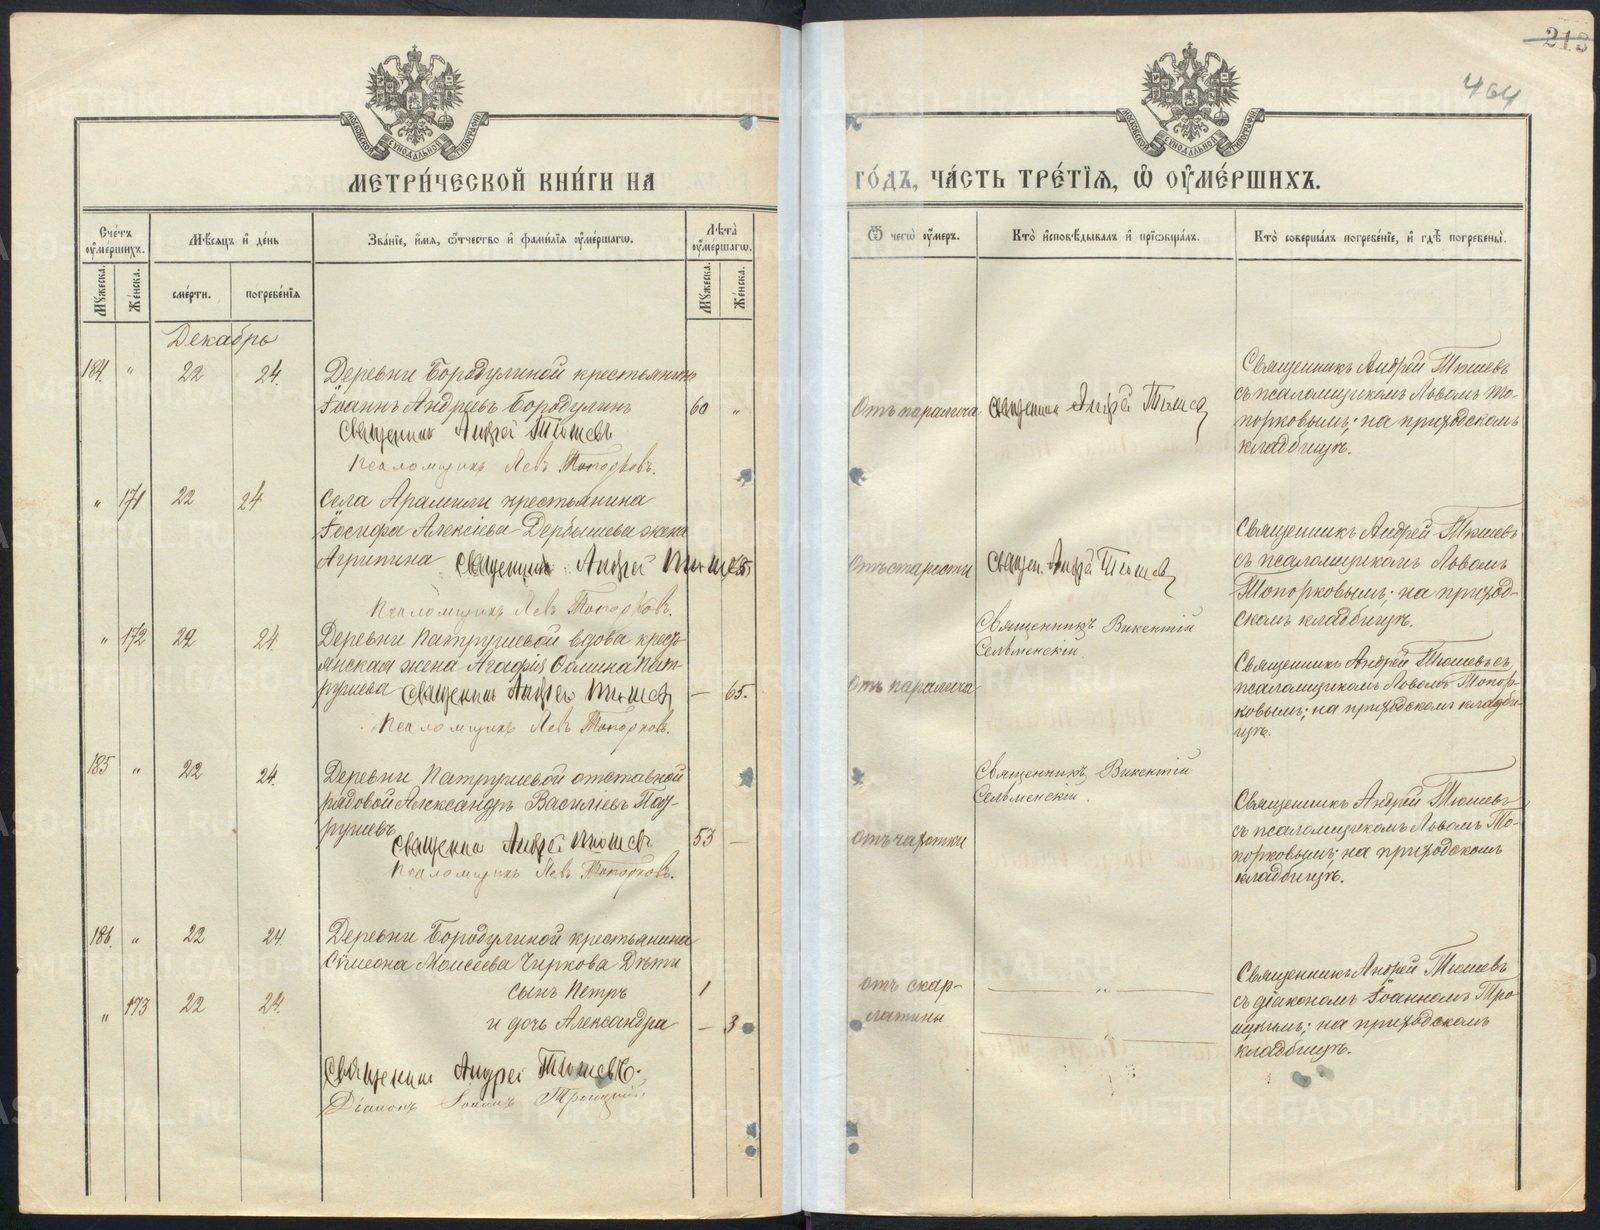 213
464
МЕТРИ́ЧЕСКОЙ КНИ́ГИ НА
ГО́ДЪ, ЧА́СТЬ ТРЕ́ТІѦ, Ѡ҆ ОУ҆МЕ́РШИХЪ.
Сче́тъ оу҆ме́ршихъ.
Мѣ́сѧцъ и҆ де́нь
Зва́нїе, и҆́мѧ, ѻ҆́тчество и҆ фами́лїѧ оу҆ме́ршагѡ.
Лѣ́та оу҆ме́ршагѡ.
Мꙋ́жеска.
Же́нска.
сме́рти.
погребе́нїѧ
Мꙋ́жеска.
Же́нска.
Ѿ чегѡ̀ оу҆́меръ.
Кто̀ и҆сповѣ́дывалъ и҆ прїѡбща́лъ.
Кто̀ соверша́лъ погребе́нїе, и҆ гдѣ̀ погребены̀.
Декабрь
184. " 22 24.
Деревни Бородулиной крестьянинъ
Іоаннъ Андреевъ Бородулинъ 60 "
Священникъ Андрей Тюшевъ
Псаломщикъ Левъ Топорковъ.
Отъ паралича
Священник Андрей Тюшев
Священникъ Андрей Тюшевъ
съ псаломщикомъ Львомъ То-
порковымъ; на приходскомъ
кладбищѣ.
" 171 22 24
Села Арамили крестьянина
Іосифа Алексіева Дербышева жена
Агрипина Священникъ Андрей Тюшевъ
Псаломщикъ Левъ Топорковъ.
Отъ старости
Священ. Андрей Тюшев
Священникъ Андрей Тюшевъ
съ псаломщикомъ Львомъ
Топорковымъ; на приход-
скомъ кладбищѣ.
" 172 22 24.
Деревни Патрушевой вдова кресть-
янская жена Агафія Ѳомина Пат-
рушева Священникъ Андрей Тюшев — 65.
Псаломщикъ Левъ Топорковъ.
Отъ паралича
Священникъ Викентій
Сельменскій.
Священникъ Андрей Тюшевъ съ
псаломщикомъ Львомъ Топор-
ковымъ; на приходскомъ кладби-
щѣ.
185 " 22 24.
Деревни Патрушевой отставной
рядовой Александръ Василіевъ Пат-
рушевъ 53 —
Священник Андрей Тюшевъ
Псаломщикъ Левъ Топорковъ.
отъ чахотки
Священникъ Викентій
Сельменскій.
Священникъ Андрей Тюшевъ
съ псаломщикомъ Львомъ То-
порковымъ; на приходскомъ
кладбищѣ.
186. " 22 24.
Деревни Бородулиной крестьянина
Сѵмеона Моисеева Чиркова дѣти
сынъ Петръ 1
" 173 22 24.
и дочь Александра — 3
Священник Андрей Тюшевъ.
Діаконъ Іоаннъ Троицкій
отъ скар-
латины
"
"
Священникъ Андрей Тюшевъ
съ діакономъ Іоанномъ Тро-
ицкимъ; на приходскомъ
кладбищѣ.